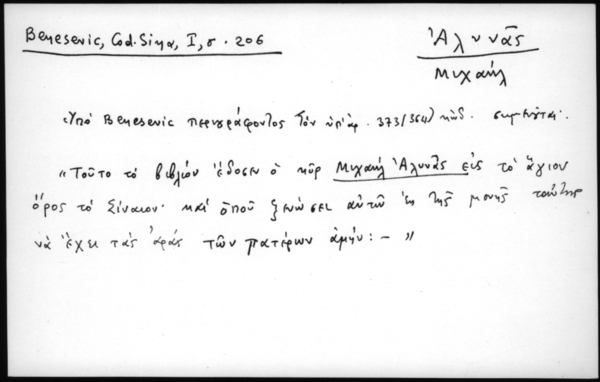 Benesevic, Cod. Sina, I, σ. 206
Ἀλυνᾶς
Μιχαήλ
Ὑπό Benesevic περιγράφοντος τόν ὑπ' ἀρ. 373/364) κώδ. σημειοῦται·
"Τοῦτο τό βιβλίον ἔδοσεν ὁ κύρ Μιχαήλ Ἀλυνᾶς εἰς τό ἅγιον
ὄρος τό Σίναιον· καί ὁποῦ ξενώσει αὐτῶ ἐκ τῆς μονῆς ταύτης
νά ἔχει τάς ἀράς τῶν πατέρων ἀμήν: — "